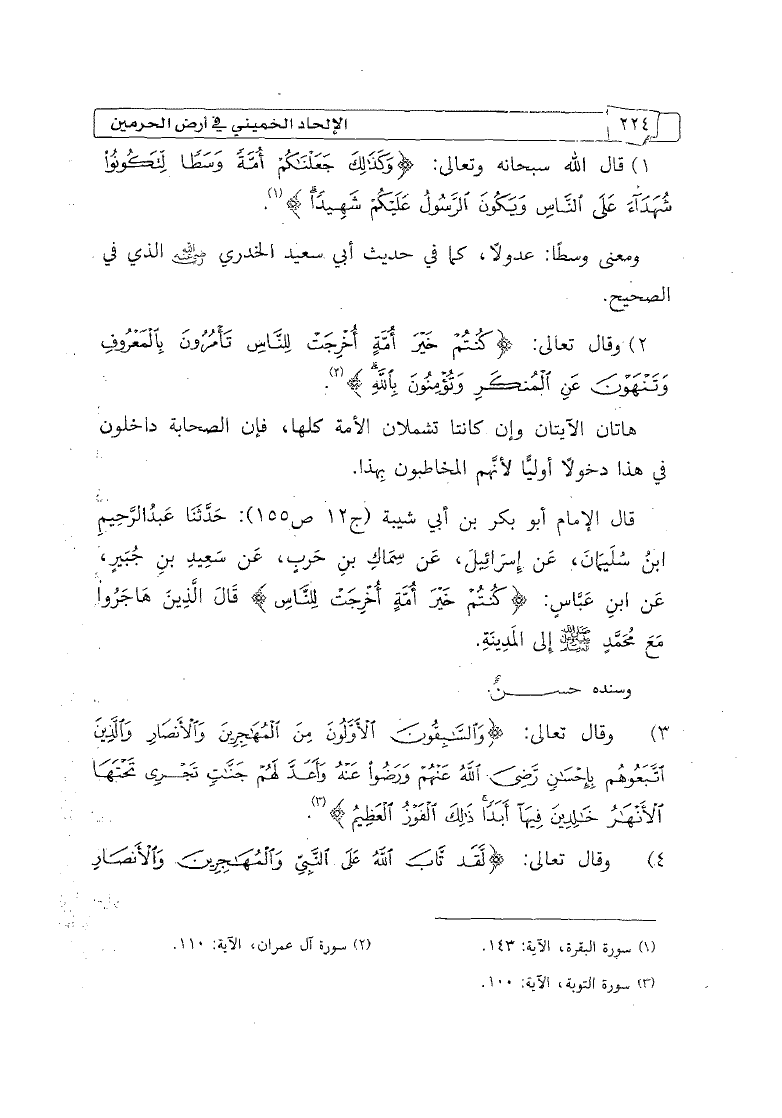 ٢٢٤
الإلحاد الخميني في أرض الحرمين
١) قال الله سبحانه وتعالى: ﴿وَكَذَٰلِكَ جَعَلْنَٰكُمْ أُمَّةً وَسَطًا لِّتَكُونُوا۟
شُهَدَآءَ عَلَى ٱلنَّاسِ وَيَكُونَ ٱلرَّسُولُ عَلَيْكُمْ شَهِيدًا ۗ﴾(١).
ومعنى وسطًا: عدولًا، كما في حديث أبي سعيد الخدري رضي الله عنه الذي في
الصحيح.
٢) وقال تعالى: ﴿كُنتُمْ خَيْرَ أُمَّةٍ أُخْرِجَتْ لِلنَّاسِ تَأْمُرُونَ بِٱلْمَعْرُوفِ
وَتَنْهَوْنَ عَنِ ٱلْمُنكَرِ وَتُؤْمِنُونَ بِٱللَّهِ ۗ﴾(٢).
هاتان الآيتان وإن كانتا تشملان الأمة كلها، فإن الصحابة داخلون
في هذا دخولًا أوليًّا لأنَّهم المخاطبون بهذا.
قال الإمام أبو بكر بن أبي شيبة (ج١٢ ص١٥٥): حَدَّثَنَا عَبدُالرَّحِيمِ
ابنُ سُلَيمَانَ، عَن إِسرَائِيلَ، عَن سِمَاكِ بنِ حَربٍ، عَن سَعِيدِ بنِ جُبَيرٍ،
عَن ابنِ عَبَّاسٍ: ﴿كُنتُمْ خَيْرَ أُمَّةٍ أُخْرِجَتْ لِلنَّاسِ﴾ قَالَ الَّذِينَ هَاجَرُوا
مَعَ مُحَمَّدٍ ﷺ إِلى المَدِينَةِ.
وسنده حســـــنٌ.
٣) وقال تعالى: ﴿وَٱلسَّٰبِقُونَ ٱلْأَوَّلُونَ مِنَ ٱلْمُهَٰجِرِينَ وَٱلْأَنصَارِ وَٱلَّذِينَ
ٱتَّبَعُوهُم بِإِحْسَٰنٍ رَّضِىَ ٱللَّهُ عَنْهُمْ وَرَضُوا۟ عَنْهُ وَأَعَدَّ لَهُمْ جَنَّٰتٍ تَجْرِى تَحْتَهَا
ٱلْأَنْهَٰرُ خَٰلِدِينَ فِيهَآ أَبَدًا ۚ ذَٰلِكَ ٱلْفَوْزُ ٱلْعَظِيمُ﴾(٣).
٤) وقال تعالى: ﴿لَّقَد تَّابَ ٱللَّهُ عَلَى ٱلنَّبِىِّ وَٱلْمُهَٰجِرِينَ وَٱلْأَنصَارِ
(١) سورة البقرة، الآية: ١٤٣.
(٢) سورة آل عمران، الآية: ١١٠.
(٣) سورة التوبة، الآية: ١٠٠.